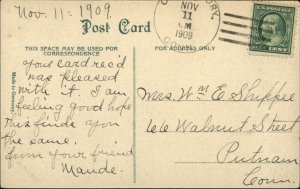 Nov. 11. 1909.
Post Card
THIS SPACE MAY BE USED FOR
CORRESPONDENCE
FOR ADDRESS ONLY
Made in Germany
NOV
11
M
1909
your card rec'd
was pleased
with it. I am
feeling good hope
this finds you
the same.
from your friend
Maude.
Mrs. Wm E Shippee
66 Walnut Street
Putnam
Conn.